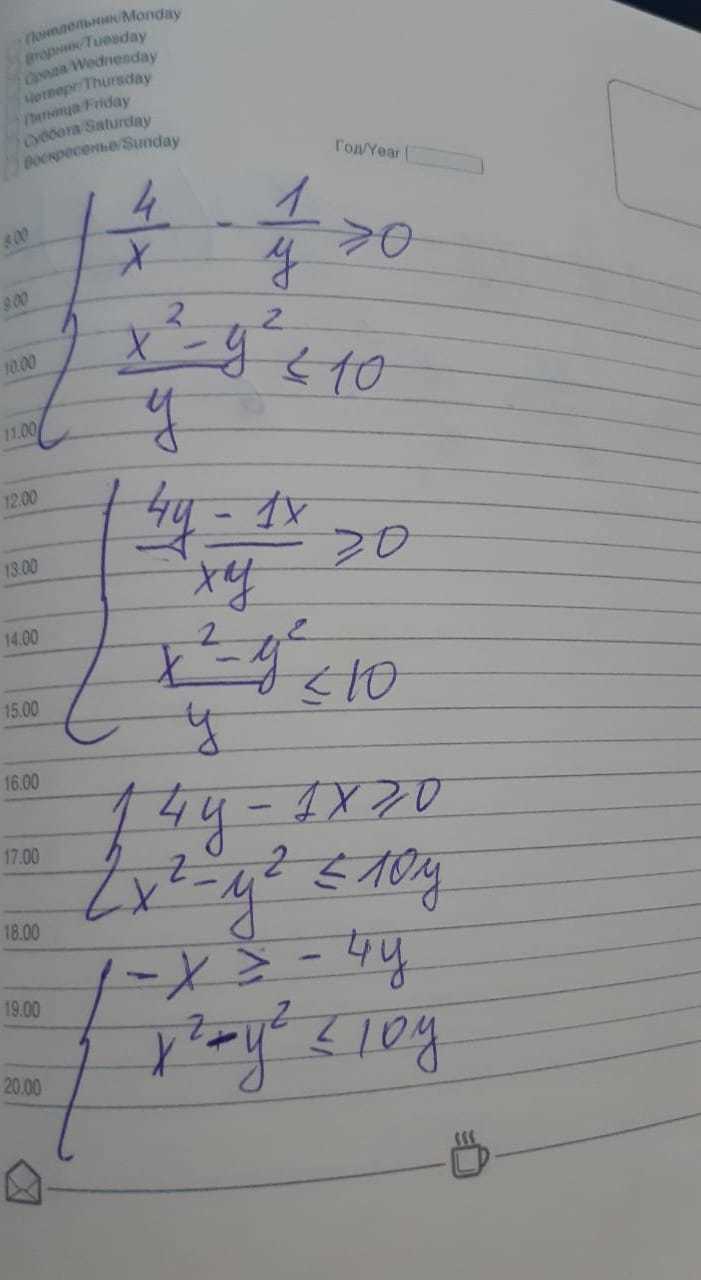 Понедельник/Monday
Вторник/Tuesday
Среда/Wednesday
Четверг/Thursday
Пятница/Friday
Суббота/Saturday
Воскресенье/Sunday
Год/Year
8.00
4/x - 1/y ≥ 0
9.00
10.00
(x² - y²)/y ≤ 10
11.00
12.00
(4y - 1x)/xy ≥ 0
13.00
14.00
(x² - y²)/y ≤ 10
15.00
16.00
4y - 1x ≥ 0
17.00
x² - y² ≤ 10y
18.00
-x ≥ -4y
19.00
x² - y² ≤ 10y
20.00